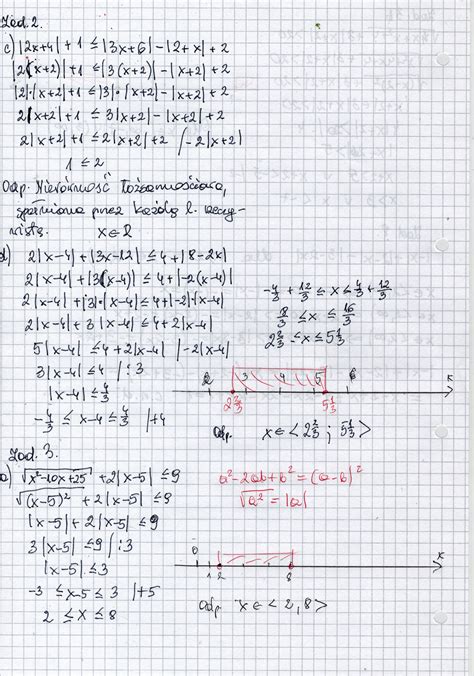 Zad. 2.
c) |2x+4| + 1 ≤ |3x+6| - |2+x| + 2
|2(x+2)| + 1 ≤ |3(x+2)| - |x+2| + 2
|2|·|x+2| + 1 ≤ |3|·|x+2| - |x+2| + 2
2|x+2| + 1 ≤ 3|x+2| - |x+2| + 2
2|x+2| + 1 ≤ 2|x+2| + 2 /-2|x+2|
1 ≤ 2
Odp. Nierówność tożsamościowa,
spełniona przez każdą l. rzeczy-
wistą. x∈R
d) 2|x-4| + |3x-12| ≤ 4 + |8-2x|
2|x-4| + |3(x-4)| ≤ 4 + |-2(x-4)|
2|x-4| + |3|·|x-4| ≤ 4 + |-2|·|x-4|
2|x-4| + 3|x-4| ≤ 4 + 2|x-4|
5|x-4| ≤ 4 + 2|x-4| /-2|x-4|
3|x-4| ≤ 4 /:3
|x-4| ≤ 4/3
-4/3 ≤ x-4 ≤ 4/3 /+4
-4/3 + 12/3 ≤ x ≤ 4/3 + 12/3
8/3 ≤ x ≤ 16/3
2 2/3 ≤ x ≤ 5 1/3
2 3 4 5 6 x
2 2/3 5 1/3
Odp. x∈<2 2/3 ; 5 1/3>
Zad. 3.
a) √x²-10x+25 + 2|x-5| ≤ 9
√(x-5)² + 2|x-5| ≤ 9
|x-5| + 2|x-5| ≤ 9
3|x-5| ≤ 9 /:3
|x-5| ≤ 3
-3 ≤ x-5 ≤ 3 /+5
2 ≤ x ≤ 8
a²-2ab+b² = (a-b)²
√a² = |a|
0 1 2 8 x
Odp. x∈<2,8>